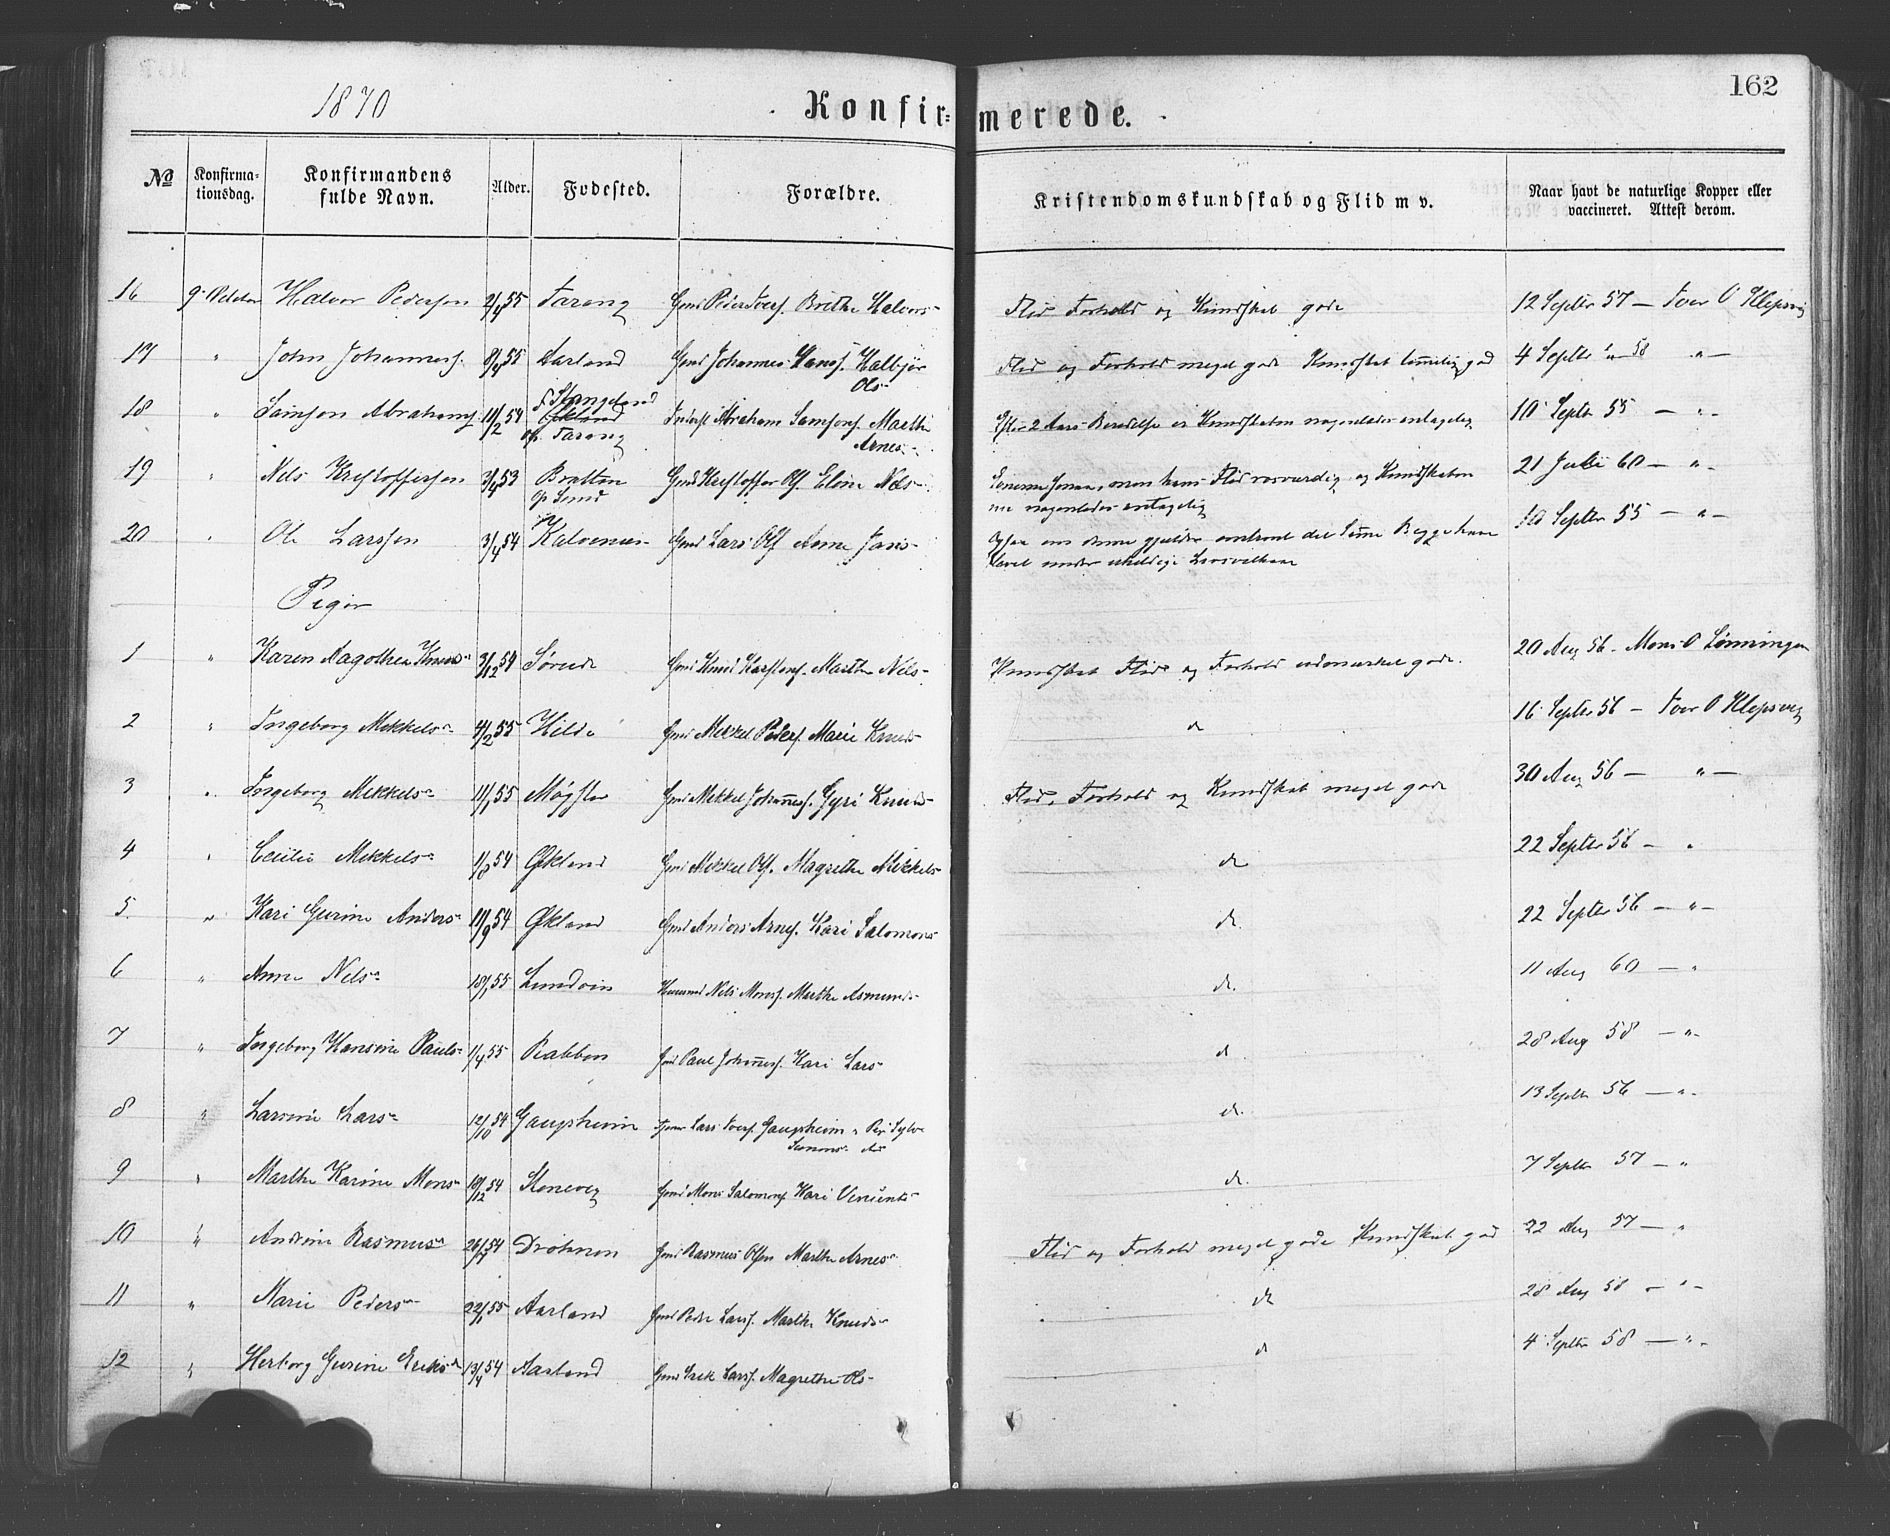 162
1870 Konfirmerede.
No Konfirmationsdag. Konfirmandens fulde Navn. Alder. Fødested. Forældre. Kristendomskundskab og Flid m v. Naar havt de naturlige Kopper eller vaccineret. Attest derom.
16 9 Halvor Pedersen 2/4 55 Farøng Gmd Peder Iversf. Birthe Halvors- Flid Forhold og Kundskab gode 12 Septbr 57 — Iver O Klepsvig
17 " John Johannesf. 8/4 55 Aarland Gmd Johannes Hansf. Halbjør Ols- Flid og Forhold meget gode Kundskab temmelig god 4 Septbr 58 " —
18 " Samson Abrahamsf 11/2 54 Stangeland Økland op. Farøng Inderst Abraham Samsonf. Marthe Arnes- Efter 2 Aars Beredelse er Kundskaben nogenledes antagelig 10 Septbr 55 — " -
19 " Nels Kristoffersen 3/4 53 Bratten op Sund Gmd Kristoffer Olf. Eline Nels- og Kundskaben nu nogenledes antagelig 21 Juli 60 — " -
20 " Ole Larssen 3/4 54 Kalvenes Gmd Lars Olf Anne Jans- Ogsaa om denne gjelder omtrent det Samme Begge have levet under uheldige Livsvilkaar 10 Septbr 55 — " —
Piger
1 " Karen Aagothea Knuds- 3/12 54 Sørude Gmd Knud Karstenf. Marthe Nels- Kundskab Flid og Forhold udmærket gode. 20 Aug 56. Mons O Lønningen
2 " Ingeborg Mekkels- 4/2 55 Hilde Gmd Mekkel Pedersf. Marie Knuds- d 16 Septbr 56 — Iver O Klepsvig
3 " Ingeborg Mekkels- 11/1 55 Møgster Gmd Mekkel Johannesf. Gyri Knuds- Flid, Forhold og Kundskab meget gode 30 Aug 56 — " —
4 " Cecilie Mekkels- 54 Økland Gmd Mekkel Olf. Magrethe Mekkels- do 22 Septbr 56 — "
5 " Kari Gurine Anders- 11/9 54 Økland Gmd Anders Arnes. Kari Salomons- do. 22 Septbr 56 — " —
6 " Anna Nels- 18/1 55 Lundøen Huusmd Nels Monsf. Marthe Asmunds- do. 11 Aug 60 — "
7 " Ingeborg Hansine Pauls- 1/4 55 Rabben Gmd Paul Johannesf. Kari Lars- d 28 Aug 58 — " -
8 " Larsine Lars- 12/10 54 Gaupsheim Lars Iversf. Gaupsheim Simons- 13 Septbr 56 — " -
9 " Marthe Karine Mons- 18/12 54 Stonevog Gmd Mons Salomonsf Kari Vincents- do. 7 Septbr 57 — "
10 " Andrine Rasmus- 54 Drøhnen Gmd Rasmus Olsen Marthe Arnes- Flid og Forhold meget gode Kundskab god 22 Aug 57 — "
11 " Marie Peders- 22/1 55 Aarland Gmd Peder Larsf. Marthe Knuds- do 28 Aug 58 — " -
12 " Herborg Gurine Eriks- 13/4 54 Aarland Gmd Erik Larsf. Magrethe Ols- d 4 Septbr 58 — " -